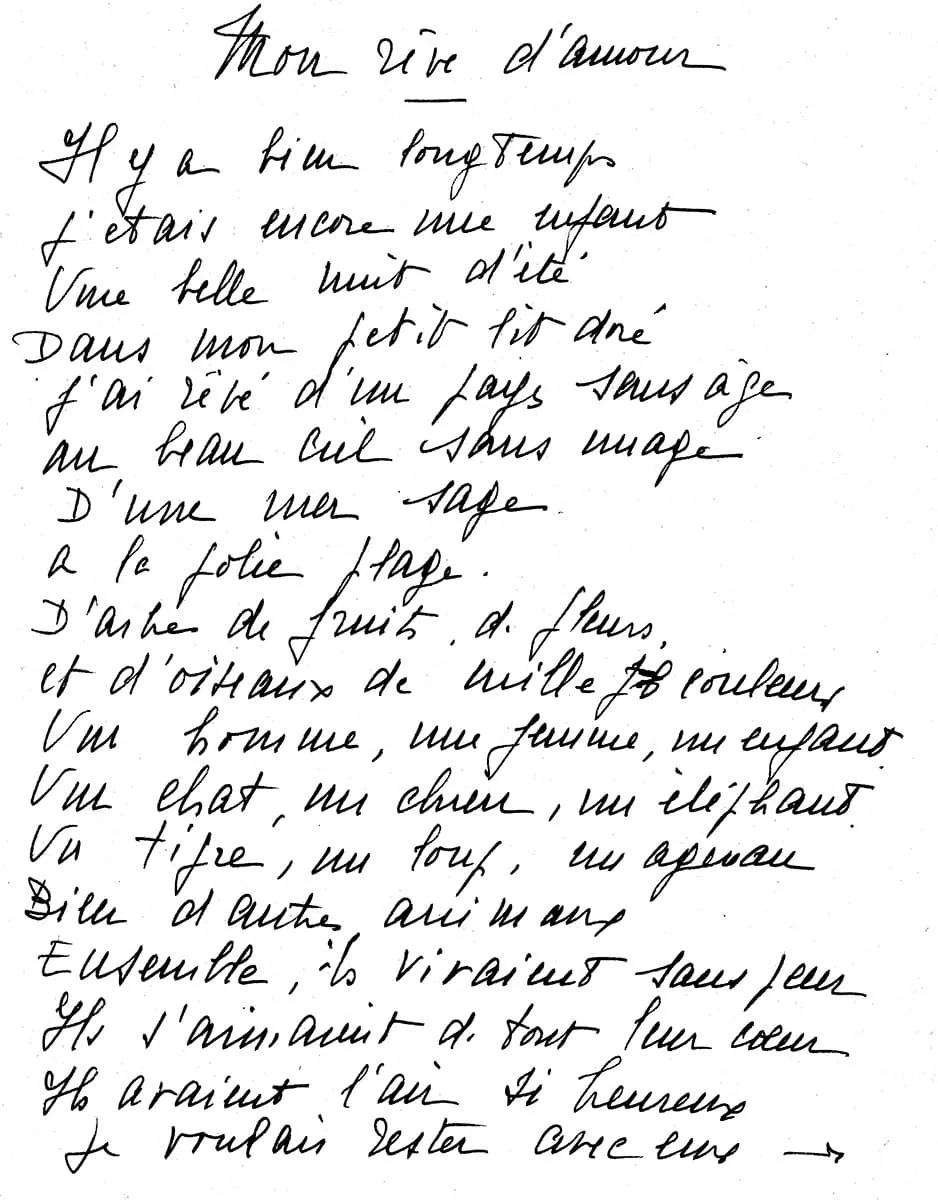 Mon rêve d'amour
Il y a bien longtemps
j'étais encore une enfant
Une belle nuit d'été
Dans mon petit lit doré
j'ai rêvé d'un pays sans âge
au beau ciel sans nuage
D'une mer sage
a la jolie plage.
D'arbres de fruits, de fleurs,
et d'oiseaux de mille couleurs
Un homme, une femme, un enfant
Un chat, un chien, un éléphant
Un tigre, un loup, un agneau
Bien d'autres animaux
Ensemble, ils vivaient sans peur
Ils s'aimaient de tout leur cœur
Ils avaient l'air si heureux
je voulais rester avec eux →